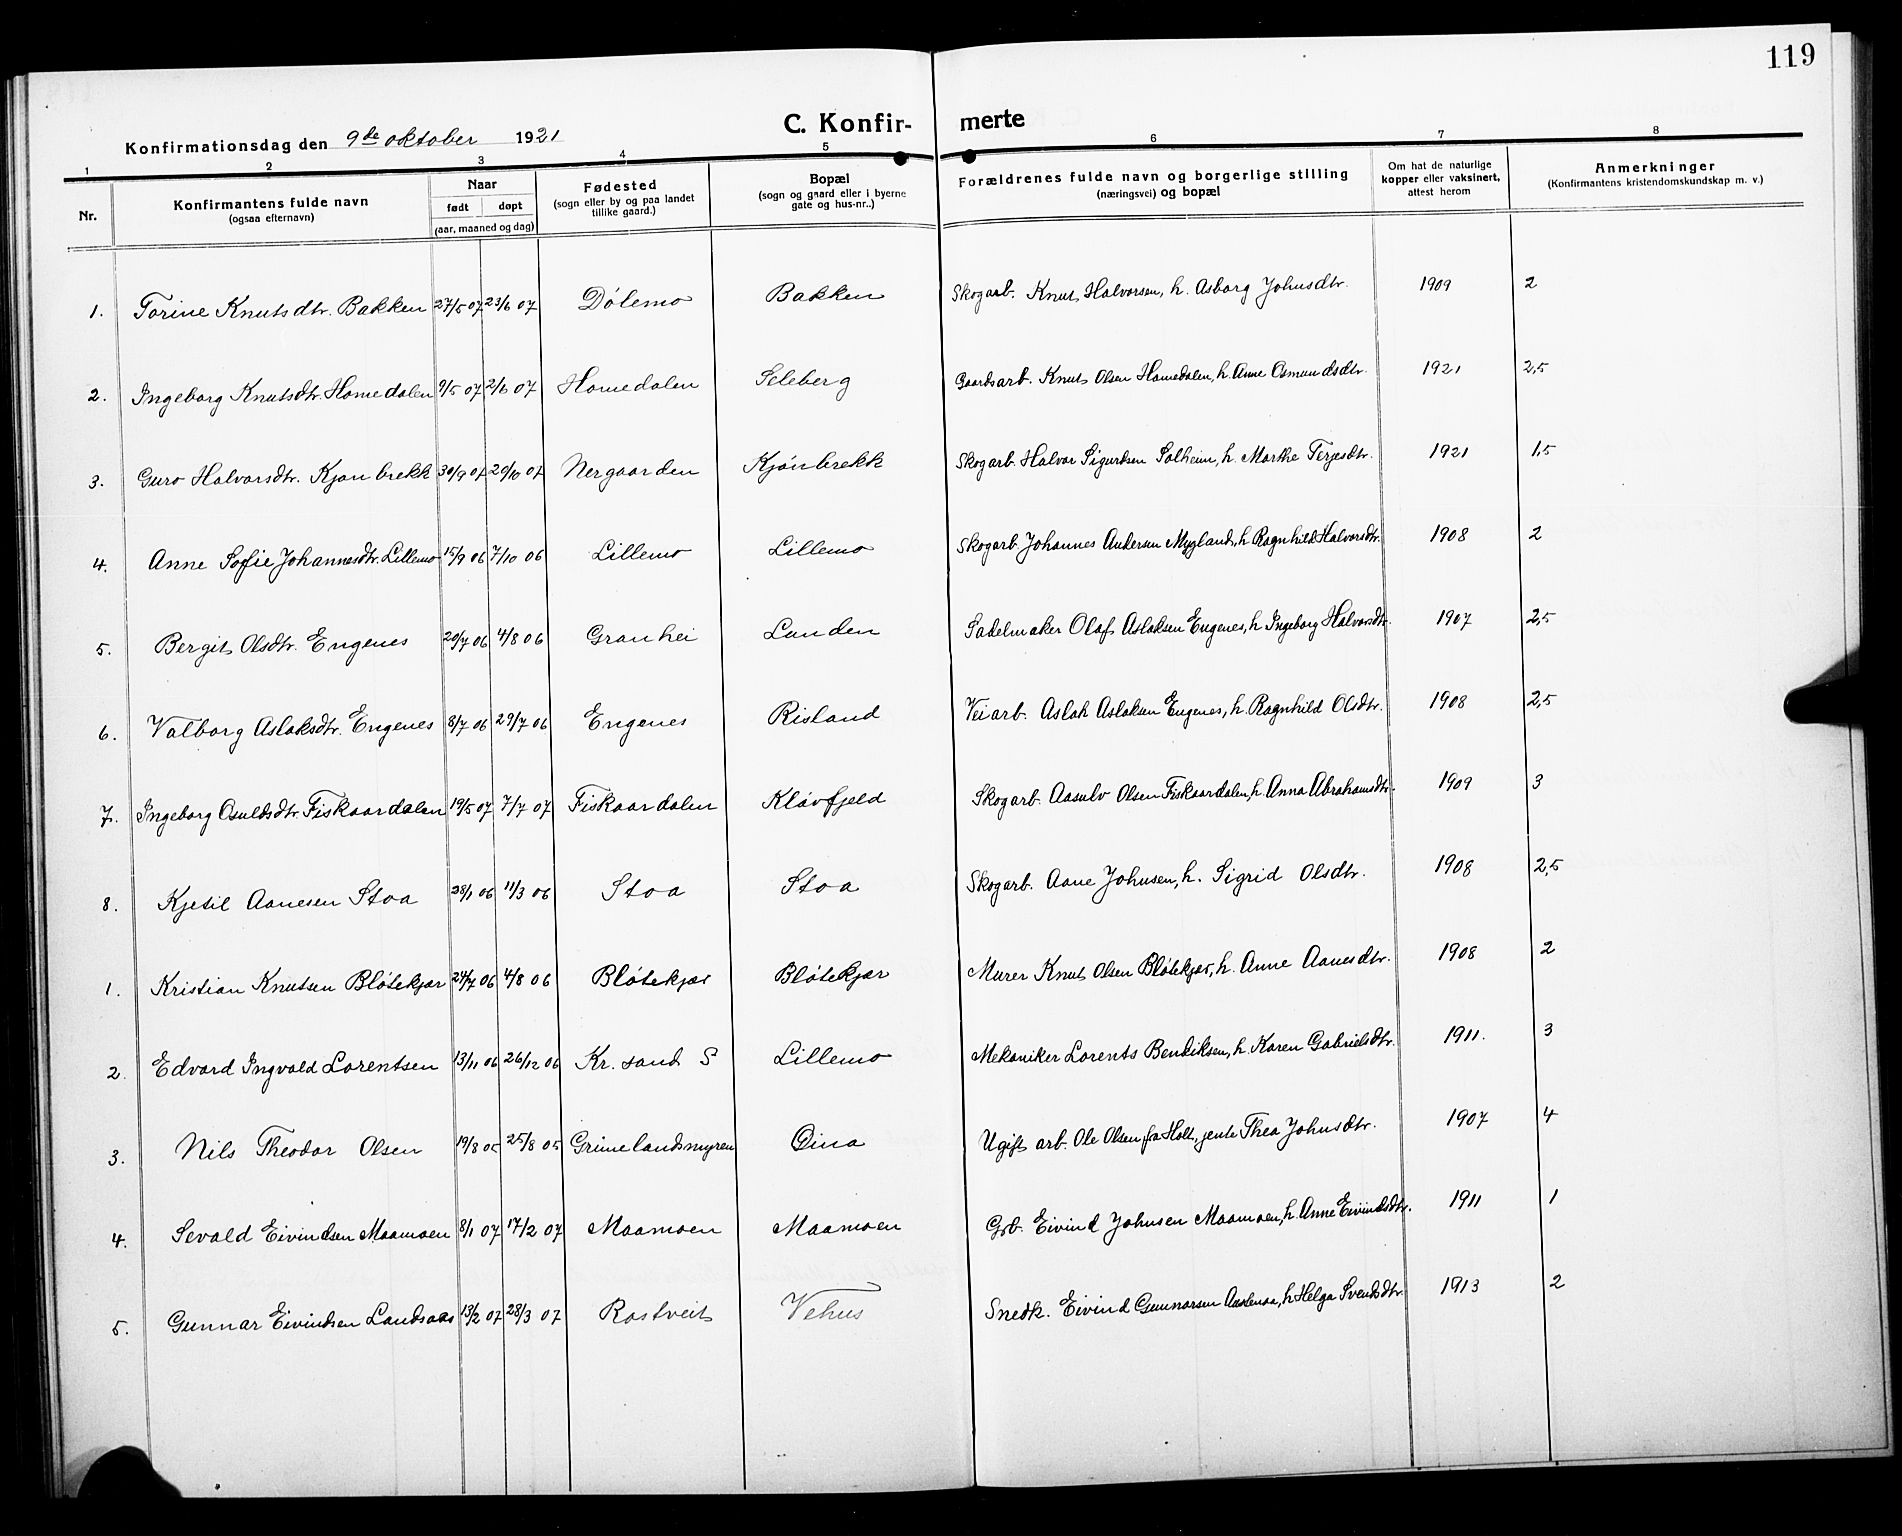 119
C. Konfir- merte
Konfirmationsdag den 9de oktober 1921
1 2 3 4 5 6 7 8
Nr.
Konfirmantens fulde navn
(ogsaa efternavn)
Naar
født døpt
(aar, maaned og dag)
Fødested
(sogn eller by og paa landet
tillike gaard.)
Bopæl
(sogn og gaard eller i byerne
gate og hus-nr..)
Forældrenes fulde navn og borgerlige stilling
(næringsvei) og bopæl
Om hat de naturlige
kopper eller vaksinert,
attest herom
Anmerkninger
(Konfirmantens kristendomskundskap m. v.)
1. Torine Knutsdtr. Bakken 27/5 07 23/6 07 Dölemo Bakken Skogarb. Knut Halvorsen, h. Asborg Johnsdtr. 1909 2
2. Ingeborg Knutsdtr. Homedalen 9/5 07 2/6 07 Homedalen Seleberg Gaardsarb. Knut Olsen Homedalen, h. Anne Osmundsdtr. 1921 2,5
3. Guro Halvorsdtr. Kjönbrekk 30/9 07 20/10 07 Nergaarden Kjönbrekk Skogarb. Halvor Sigurdsen Solheim, h. Marthe Terjesdtr. 1921 1,5
4. Anne Sofie Johannesdtr. Lillemo 15/9 06 7/10 06 Lillemo Lillemo Skogarb. Johannes Andersen Mygland, h. Ragnhild Halvorsdtr. 1908 2
5. Bergit Olsdtr. Engenes 20/7 06 4/8 06 Granhei Lunden Sadelmaker Olaf Aslaksen Engenes, h Ingeborg Halvorsdtr. 1907 2,5
6. Valborg Aslaksdtr. Engenes 8/7 06 29/7 06 Engenes Risland Veiarb. Aslak Aslaksen Engenes, h. Ragnhild Olsdtr. 1908 2,5
7. Ingeborg Osuldsdtr. Fiskaardalen 19/5 07 7/7 07 Fiskaardalen Klövfjeld Skogarb. Aasulv Olsen Fiskaardalen, h. Anna Abrahamsdtr. 1909 3
8. Kjetil Aanesen Stoa 28/1 06 11/3 06 Stoa Stoa Skogarb. Aane Johnsen, h. Sigrid Olsdtr. 1908 2,5
1. Kristian Knutsen Blötekjær 24/7 06 4/8 06 Blötekjær Blötekjær Murer Knut Olsen Blötekjær, h. Anne Aanesdtr. 1908 2
2. Edvard Ingvald Lorentsen 13/11 06 26/12 06 Kr. sand S Lillemo Mekaniker Lorents Bendiksen, h. Karen Gabrielsdtr. 1911. 3
3. Nils Theodor Olsen 19/8 05 25/8 05 Grimelandsmyren Oina Ugift arb. Ole Olsen fra Holt, jente Thea Johnsdtr. 1907 4
4. Sevald Eivindsen Maamoen 8/1 07 17/2 07 Maamoen Maamoen Grb. Eivind Johnsen Maamoen, h. Anne Eivindsdtr. 1911 1
5. Gunnar Eivindsen Landsaas 13/2 07 28/3 07 Rostveit Vehus Snedk. Eivind Gunnarsen h Helga Svendsdtr. 1913 2